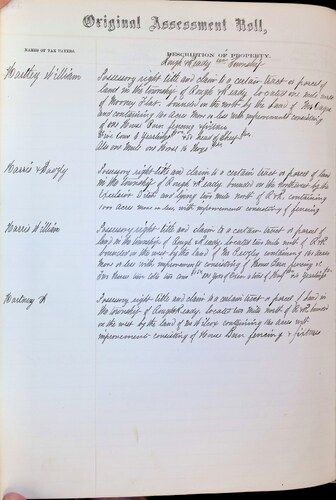 Original Assessment Roll,
NAMES OF TAX PAYERS.
DESCRIPTION OF PROPERTY.
Rough & Ready Township
Hartley William
Possessory right title and claim to a certain tract or parcel of
land in the township of Rough & Ready located one mile
of Flat bounded on the north by the land of
and containing 160 acres more or less with improvements consisting
of one House Barn fencing & fixtures
Also one mule one Horse 15 Hogs
Harris &
Possessory right title and claim to a certain tract or parcel of land
in the township of Rough & Ready bounded on the northwest by the
Excelsior Ditch and lying two miles north of R & R, containing
160 acres more or less, with improvements consisting of fencing
Harris William
Possessory right title and claim to a certain tract or parcel of
land in the township of Rough & Ready located two miles north of R & R,
bounded on the west by the land of containing 160 acres
more or less with improvements consisting of House Barn fencing &
Hartney
Possessory right title and claim to a certain tract or parcel of land in
the township of Rough & Ready located two miles north of R & R, bounded
on the west by the land of containing 160 acres with
improvements consisting of House Barn fencing & fixtures